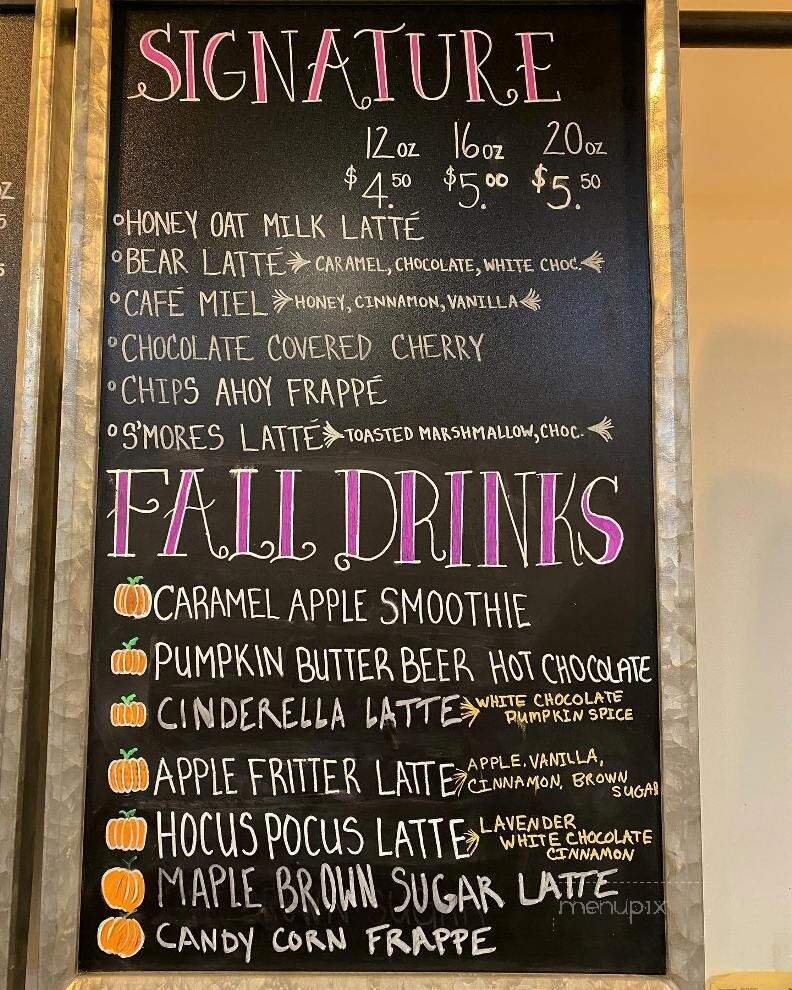 SIGNATURE
12oz 16oz 20oz
$4.50 $5.00 $5.50
HONEY OAT MILK LATTÉ
BEAR LATTÉ CARAMEL, CHOCOLATE, WHITE CHOC.
CAFÉ MIEL HONEY, CINNAMON, VANILLA
CHOCOLATE COVERED CHERRY
CHIPS AHOY FRAPPÉ
S'MORES LATTÉ TOASTED MARSHMALLOW, CHOC.
FALL DRINKS
CARAMEL APPLE SMOOTHIE
PUMPKIN BUTTER BEER HOT CHOCOLATE
CINDERELLA LATTE WHITE CHOCOLATE
PUMPKIN SPICE
APPLE FRITTER LATTE APPLE, VANILLA,
CINNAMON, BROWN
SUGAR
HOCUS POCUS LATTE LAVENDER
WHITE CHOCOLATE
CINNAMON
MAPLE BROWN SUGAR LATTE
menupix
CANDY CORN FRAPPE